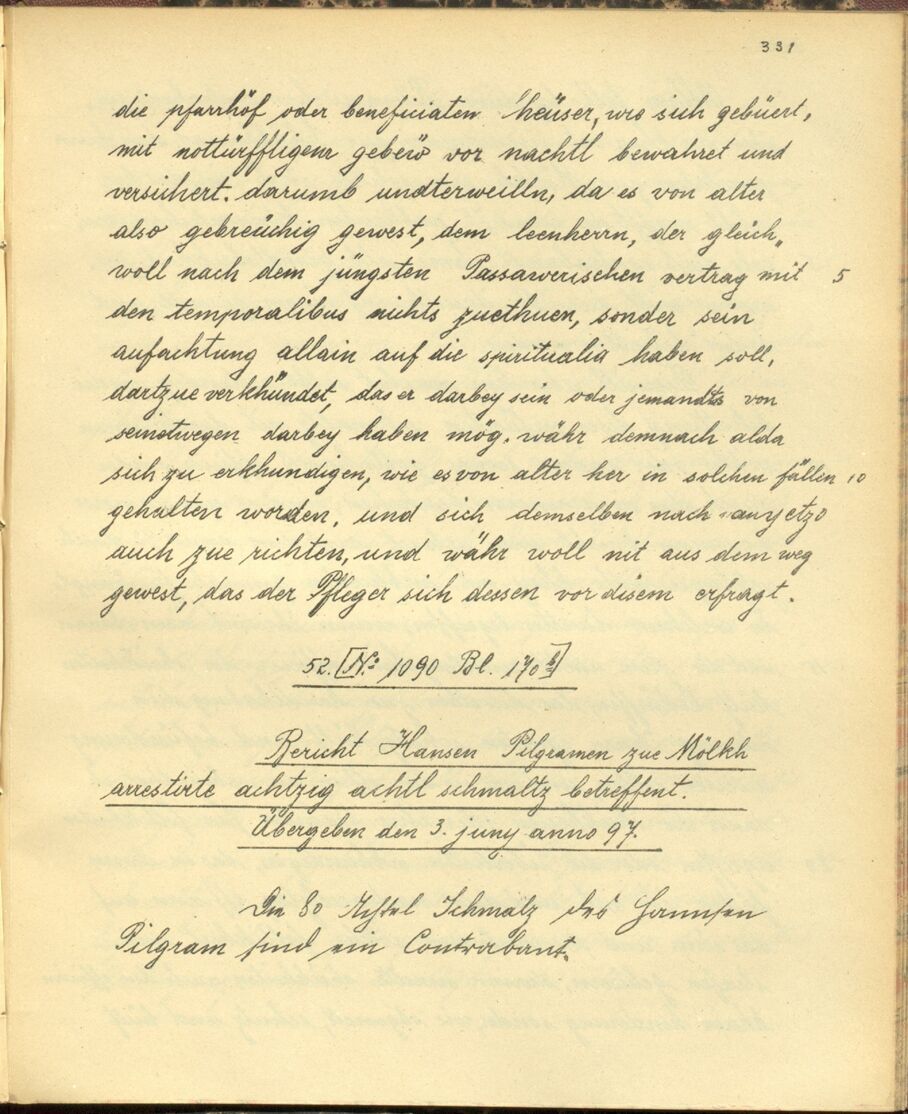 331
die pfarrhöf oder beneficiaten heüser, wie sich gebüert,
mit nottürffligem gebeü vor nachtl bewahret und
versichert. darumb undterweilln, da es von alter
also gebreüchig gewest, dem leenherrn, der gleich„
woll nach dem jüngsten Passawerischen vertrag mit 5
den temporalibus nichts zuethuen, sonder sein
aufachtung allain auf die spiritualia haben soll,
dartzue verkhündet, das er darbey sein oder jemandts von
seinetwegen darbey haben mög. währ demnach alda
sich zu erkhundigen, wie es von alter her in solchen fällen 10
gehalten worden, und sich demselben nach anyetzo
auch zue richten, und währ woll nit aus dem weg
gewest, das der Pfleger sich dessen vor disem erfragt.
52. [No: 1090 Bl. 170b]
Bericht Hansen Pilgramen zue Mölkh
arrestirte achtzig achtl schmaltz betreffent.
Übergeben den 3. juny anno 97.
Die 80 Achtel Schmalz des Hannsen
Pilgram sind ein Contrabant.